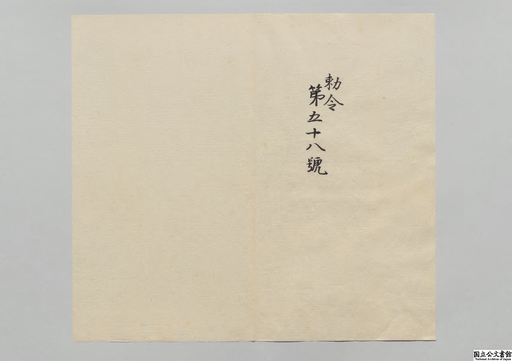 勅令
第五十八號
国立公文書館
National Archives of Japan